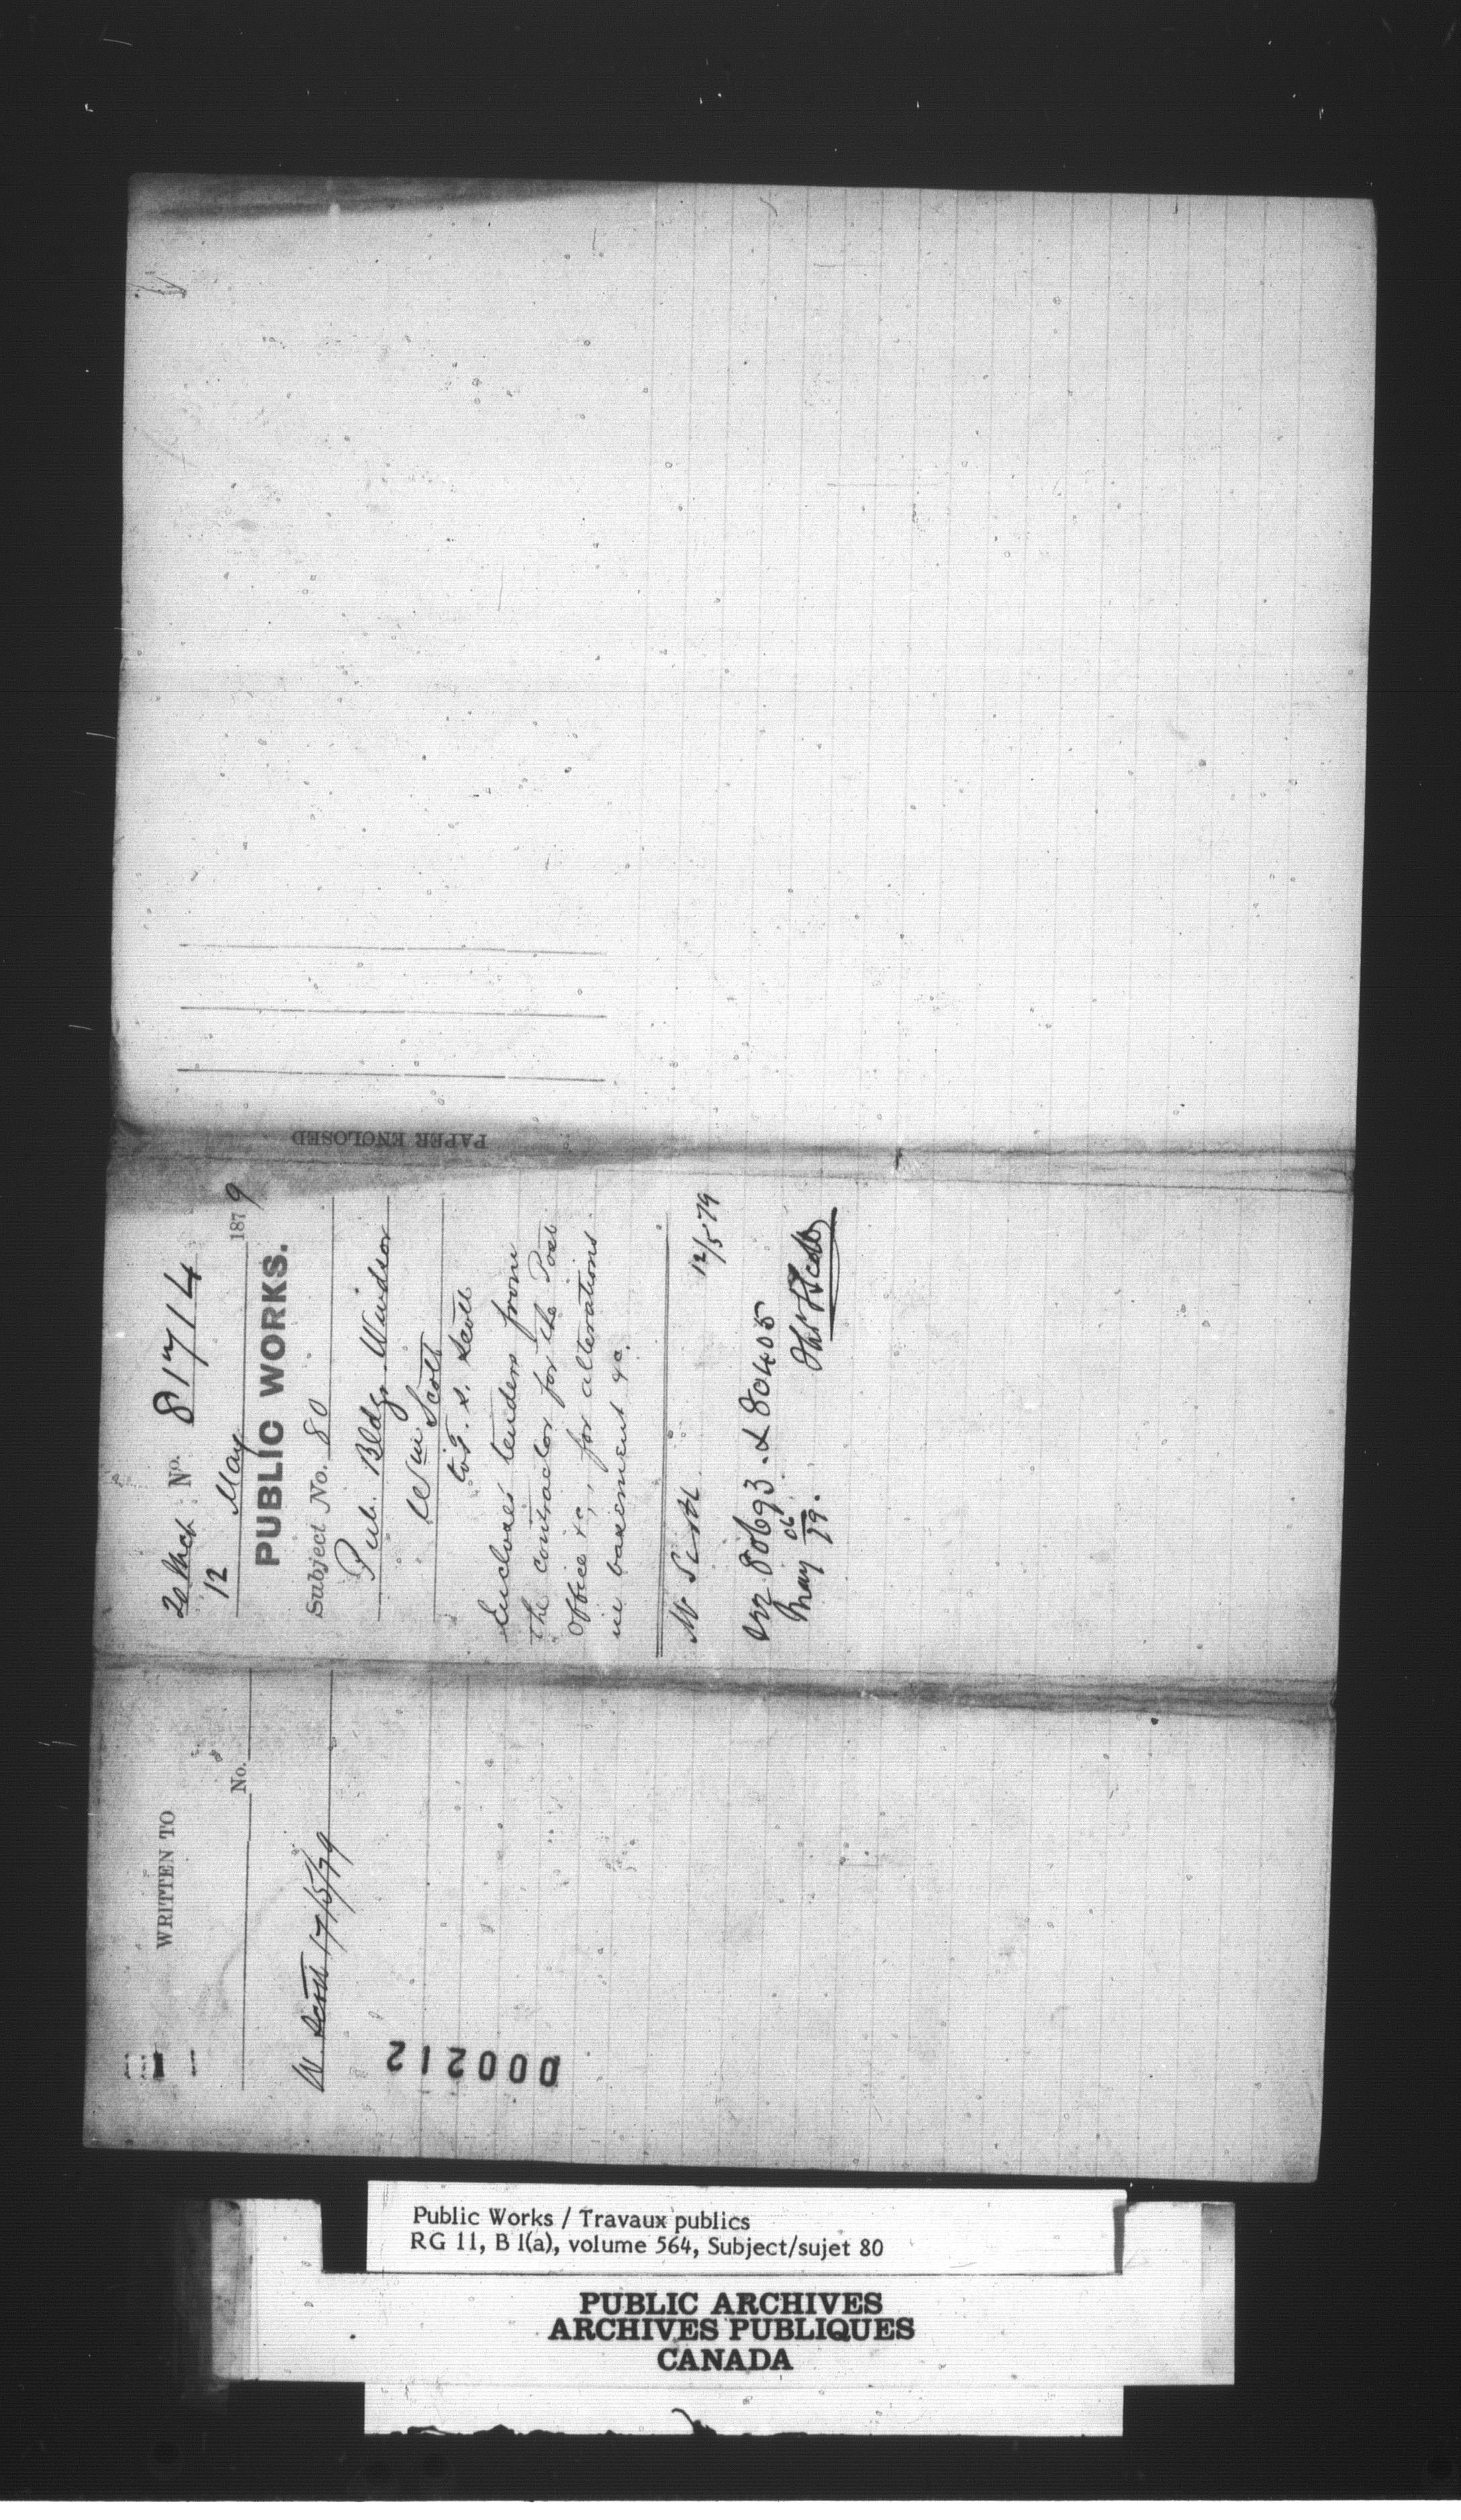 PAPER ENCLOSED
No. 81714
12 May 1879
PUBLIC WORKS.
Subject No. 80
Pub. Bldg. Windsor
Wm Scott
T. S. Scott
Encloses tenders from
the contractor for the Post
Office &c, for alterations
in basement &c.
Mr Scott 12/5 79
80693 & 80405
May 79.
WRITTEN TO
No.
W. Scott 17/5/79
000212
Public Works / Travaux publics
RG 11, B 1(a), volume 564, Subject/sujet 80
PUBLIC ARCHIVES
ARCHIVES PUBLIQUES
CANADA